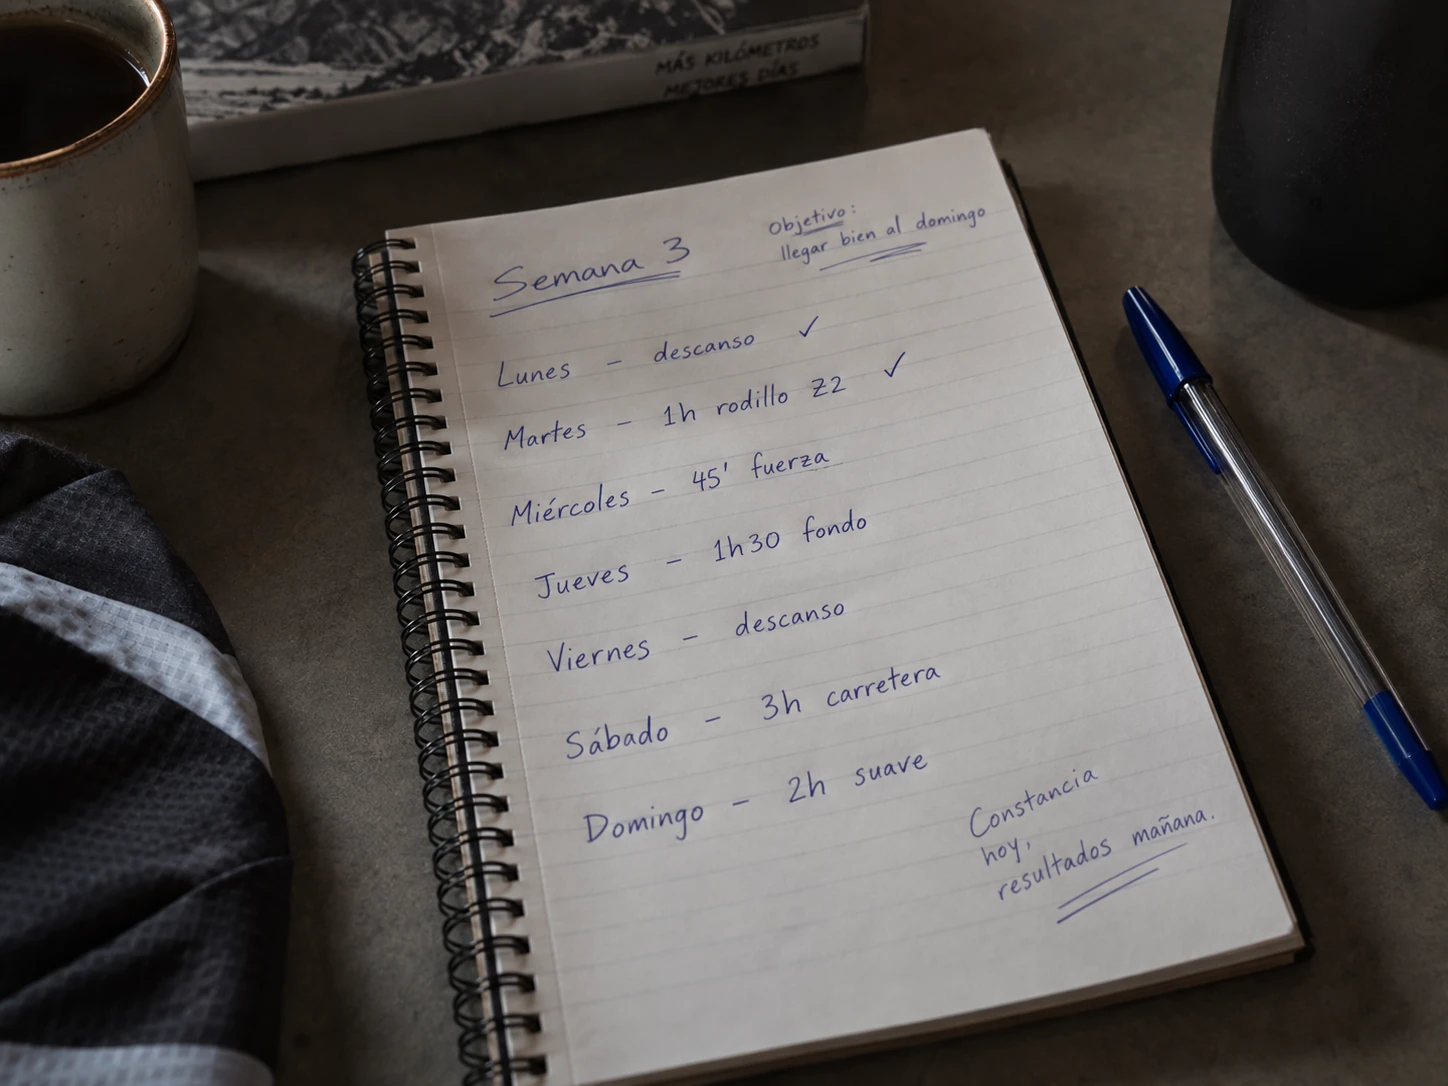 MÁS KILÓMETROS
MEJORES DÍAS
Semana 3
Objetivo:
llegar bien al domingo
Lunes - descanso ✓
Martes - 1h rodillo Z2 ✓
Miércoles - 45' fuerza
Jueves - 1h30 fondo
Viernes - descanso
Sábado - 3h carretera
Domingo - 2h suave
Constancia
hoy,
resultados mañana.